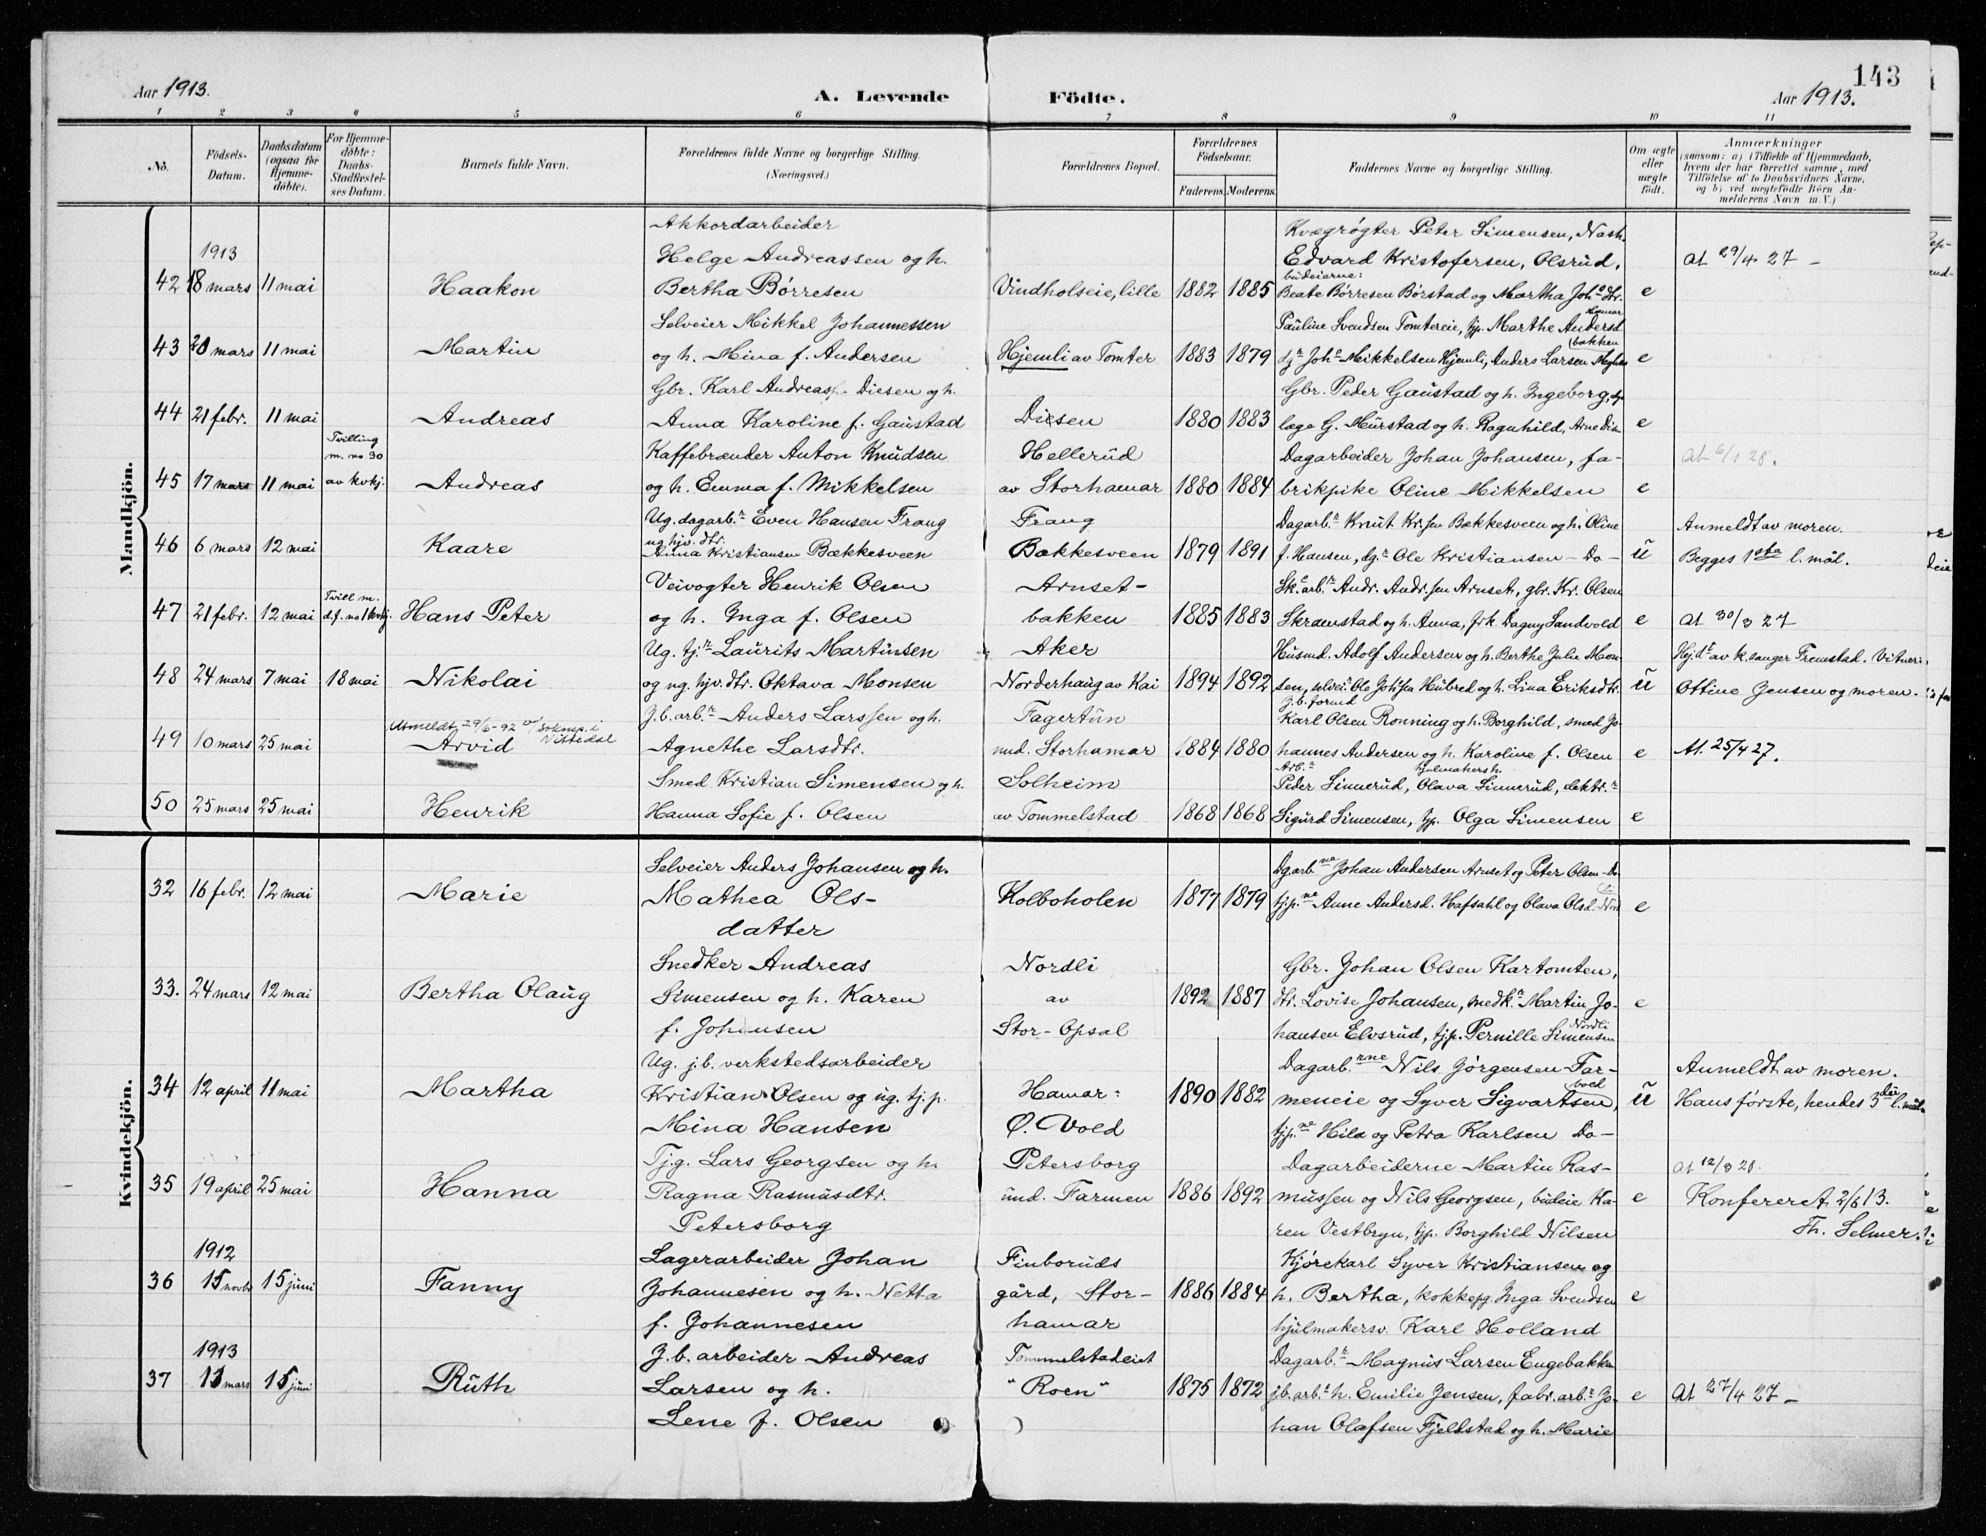 143
Aar 1913.
A. Levende Födte.
Aar 1913.
1 2 3 4 5 6 7 8 9 10 11
No.
Födsels-Datum.
Daabsdatum (ogsaa for Hjemme-döbte).
For Hjemme-döbte: Daabs-Stadfæstel-ses Datum.
Barnets fulde Navn.
Forældrenes fulde Navne og borgerlige Stilling. (Næringsvei.)
Forældrenes Bopæl.
Forældrenes Födselsaar.
Faderens. Moderens.
Faddernes Navne og borgerlige Stilling.
Om ægte eller uægte födt.
Anmærkninger
(saasom: a) i Tilfælde af Hjemmedaab, hvem der har forrettet samme, med Tilföielse af to Daabsvidners Navne, og b) ved uægtefödte Börn An-melderens Navn m. V.)
Mandkjön.
Akkordarbeider Kvægrøgter Peter Simensen, Nash.
1913 Helge Andreassen og h. Edvard Kristofersen, Olsrud, At 29/4 27 –
budeierne:
42 18 mars 11 mai Haakon Bertha Børresen Vindholseie, lille 1882 1885 Beate Børresen Børstad og Martha Joh dtr. e
Hamar
Selveier Mikkel Johannessen Pauline Svendsen Tomtereie, tjp. Marthe Andersd.
bakken
43 20 mars 11 mai Martin og h. Mina f. Andersen Hjemli av Tomter 1883 1879 Joh. Mikkelsen Hjemli, Anders Larsen e
Gbr. Karl Andreas Diesen og h. Gbr. Peder Gaustad og h. Ingeborg,
44 21 febr. 11 mai Andreas Anna Karoline f. Gaustad Diesen 1880 1883 læge G. Mürstad og h. Ragnhild, Arne Dis- e
Tvilling m. no 30 av kvkj. Kaffebrænder Anton Knudsen Hellerud Dagarbeider Johan Johansen, fa- At 6/1 28.
45 17 mars 11 mai Andreas og h. Emma f. Mikkelsen av Storhamar 1880 1884 brikpike Oline Mikkelsen e
Ug. dagarb.r Even Hansen Frang Frang Dagarb.r Knut Kr.sen Bækkesveen og h. Oline Anmeldt av moren.
ug hjv. dtr.
46 6 mars 12 mai Kaare Anna Kristiansen Bækkesveen Bækkesveen 1879 1891 f. Hansen, Ole Kristiansen – Do – ũ Begges 1ste l. mål.
Tvill m. d.f. no 1 kvkj. Veivogter Henrik Olsen Arnset- Sk. arb. Andr. Andr.sen Arnset, gbr. Kr. Olsen
47 21 febr. 12 mai Hans Peter og h. Inga f. Olsen bakken 1885 1883 Skramstad og h. Anna, frk. Dagny Sandvold e At 30/3 27
Ug. tj.r Laurits Martinsen Aker Husmd. Adolf Andersen og h. Berthe Julie Mon- Hj.dt av k.sanger Frenstad. Vitner:
48 24 mars 7 mai 18 mai Nikolai og ug. hjv. dtr. Oktava Monsen Norderhaug av Kai 1894 1892 sen, selvei Ole Joh.sen Hubred og h. Lina Eriksdtr. ũ Ottine Jensen og moren.
J.b. formd
Utmeldt 29/6-92 J.b. arb.r Anders Larssen og h. Fagertun Karl Olsen Rønning og h. Borghild, smed Jo-
49 10 mars 25 mai Arvid Agnethe Larsdtr. und. Storhamar 1884 1880 hannes Andersen og h. Karoline f. Olsen e At. 25/4 27.
Arb.r hjulmakersh.
Smed Kristian Simensen og h. Solheim Peder Sinnerud, Olava Sinnerud, elektr.r
50 25 mars 25 mai Henrik Hanna Sofie f. Olsen av Tommelstad 1868 1868 Sigurd Simensen, tjp. Olga Simensen e
Kvindekjön.
Selveier Anders Johansen og h. Dgarb.ne Johan Andersen Arnset og Peter Olsen Do.
32 16 febr. 12 mai Marie Mathea Ols- Kolboholen 1877 1879 tjp.ne Anne Andersd. Hafsahl og Olava Olsd. e
datter
Snedker Andreas Nordli Gbr. Johan Olsen Kartomten,
33. 24 mars 12 mai Bertha Olaug Simensen og h. Karen av 1892 1887 dtr. Lovise Johansen, snedk.r Martin Jo- e
Nordli
f. Johansen Stor-Opsal hansen Elvsrud, tjp. Pernille Simensen
Ug. j.b. verkstedsarbeider Dagarb.rne Nils Jørgensen Far- Anmeldt av moren.
vold
34 12 april 11 mai Martha Kristian Olsen og ug. tj.p. Hamar: 1890 1882 meneie og Syver Sigvartsen, ũ Hans første, hendes 3die l. mål.
Mina Hansen Ø. Vold tjp.ne Hila og Petra Karlsen Do –
Tj.g. Lars Georgsen og h. Petersborg Dagarbeiderne Martin Ras- At 12/3 28.
35 19 april 25 mai Hanna Ragna Rasmusdtr. und. Farmen 1886 1892 mussen og Nils Georgsen, budeie Ka- e Konfereret 2/6 13.
Petersborg ren Vestbyn, tjp. Borghild Nilsen Th. Selmer.
1912 Lagerarbeider Johan Finboruds Kjørekarl Syver Kristiansen og
36 15 novbr 15 juni Fanny Johannesen og h. Netha gård, Stor- 1886 1884 h. Bertha, kokkepg. Inga Svendsen e
f. Johannesen hamar hjulmakersv. Karl Holland
1913 J.b. arbeider Andreas Tommelstadeiet Dagarb.r Magnus Larsen Engebakken
37 13 mars 15 juni Ruth Larsen og h. "Roen" 1875 1872 jb. arb.s h. Emilie Jensen, fabr. arb.r Jo- e At 27/4 27 –
Lene f. Olsen han Olafsen Fjeldstad og h. Marie